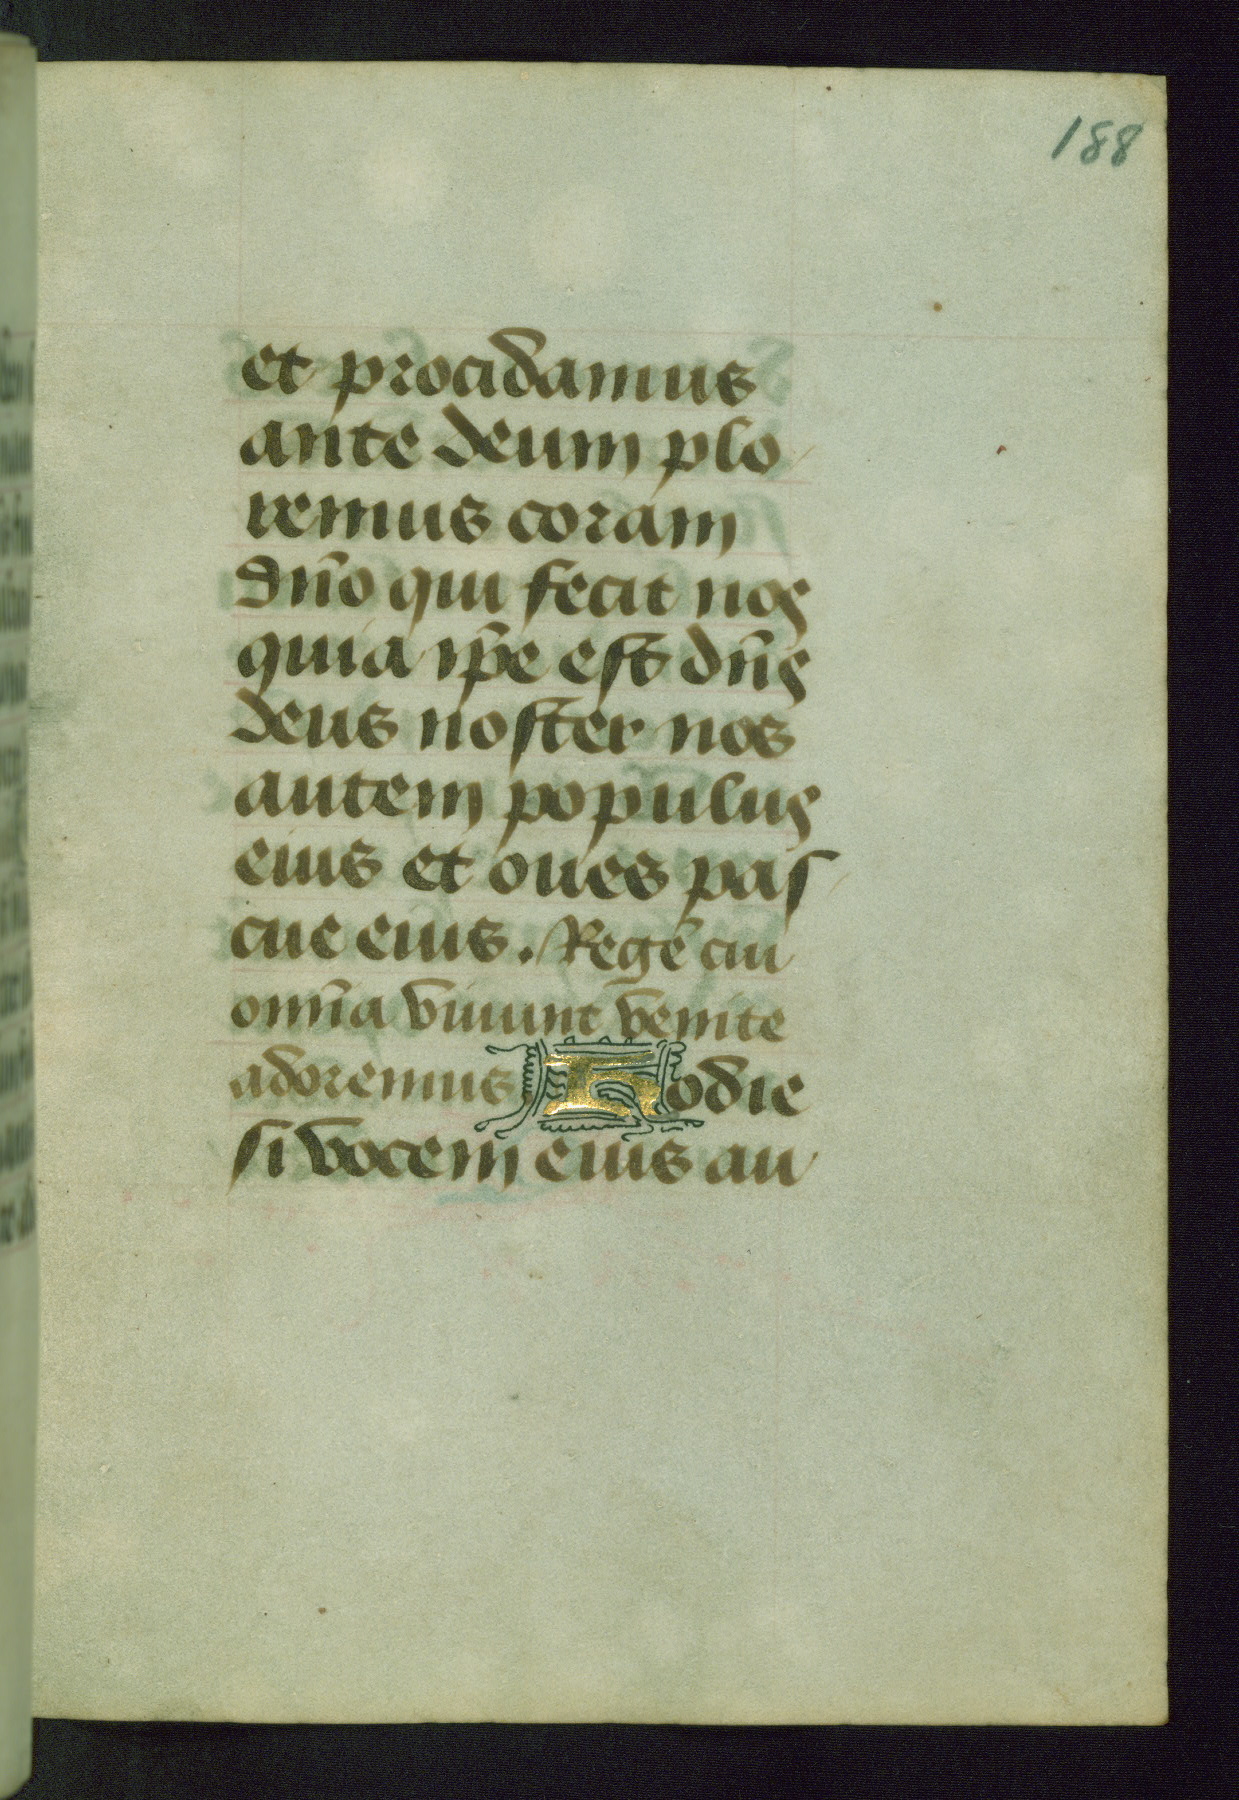 188
et procidamus
ante deum plo
remus coram
dn̄o qui fecit nos
quia ip̄e est dn̄s
deus noster nos
autem populus
eius et oues pas
cue eius. Regē cui
omīa viuunt venite
adoremus Hodie
si vocem eius au